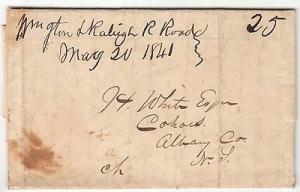 & Raleigh R Road
25
May 20 1841
H. White Esqr
Cohoes
Albany Co.
N. Y.
ch